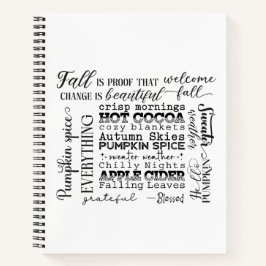 Fall IS PROOF THAT welcome
CHANGE IS beautiful fall
crisp mornings
HOT COCOA
cozy blankets
Autumn Skies
PUMPKIN SPICE
sweater weather
Chilly Nights
APPLE CIDER
Falling Leaves
grateful Blessed
Pumpkin spice
EVERYTHING
Sweater
weather
Hello
PUMPKIN